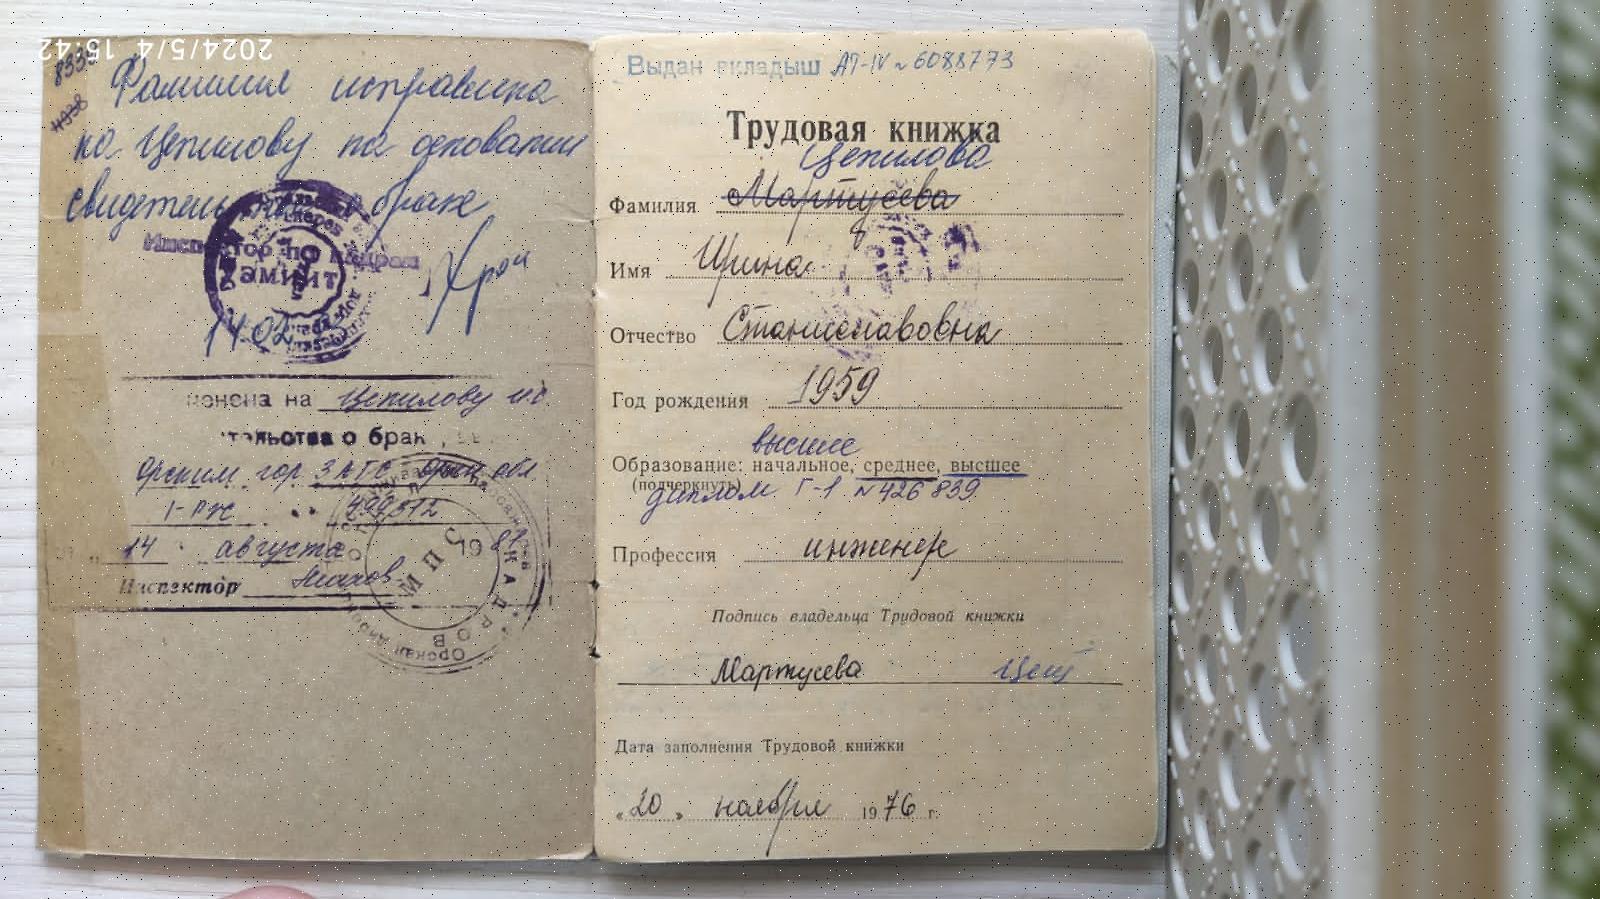 2024/5/4 15:42
833
4938
Фамилия исправлена
на Цепилову на основании
свидетельства о браке
Инспектор по кадрам
14.02
менена на Цепилову И.С.
тельства о брак
Орским гор ЗАГС Орен обл.
I-РЖ 499312
14 августа 1981
Инспектор
ОТДЕЛ КАДРОВ
МПС
Выдан вкладыш АТ-IV № 6088773
Трудовая книжка
Цепилова
Фамилия Мартусева
Имя Ирина
Отчество Станиславовна
Год рождения 1959
высшее
Образование: начальное, среднее, высшее
(подчеркнуть)
диплом Г-1 № 426839
Профессия инженер
Подпись владельца Трудовой книжки
Мартусева Цеп
Дата заполнения Трудовой книжки
„20" ноября 1976 г.